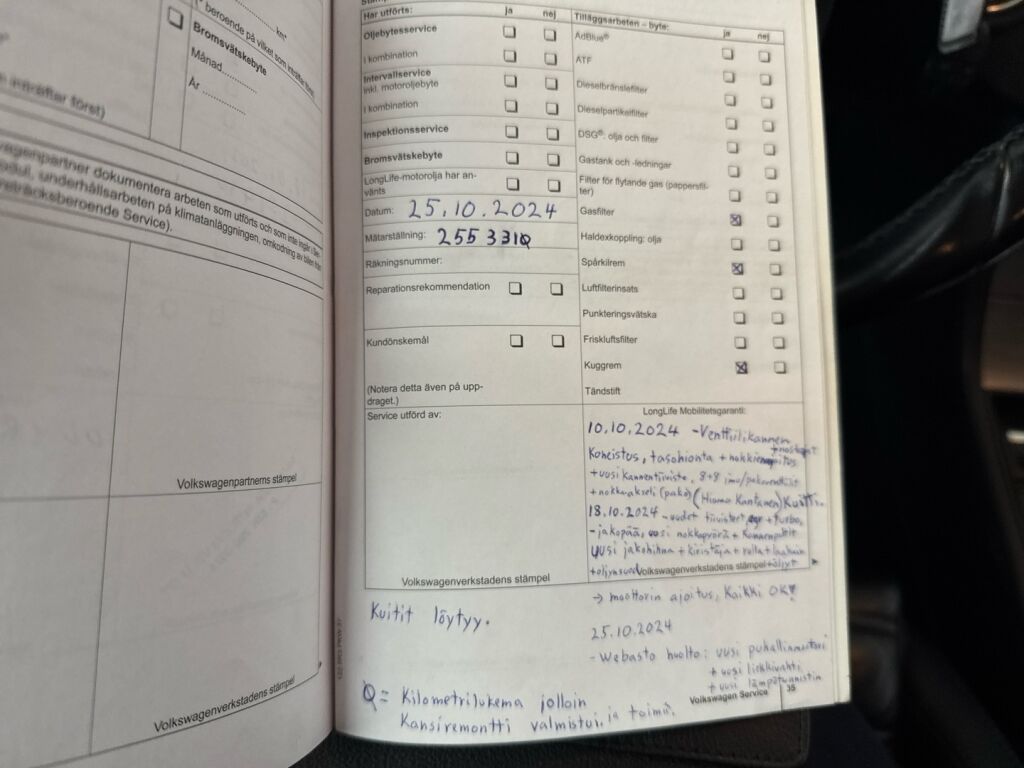 * beroende på vilket som inträffar först
km*
Bromsvätskebyte
Månad
År
Volkswagenpartnerns stämpel
Volkswagenverkstadens stämpel
Har utförts: ja nej
Oljebytesservice
I kombination
Intervallservice
inkl. motoroljebyte
I kombination
Inspektionsservice
Bromsvätskebyte
LongLife-motorolja har an-
vänts
Datum: 25.10.2024
Mätarställning:
Räkningsnummer:
Reparationsrekommendation
Kundönskemål
(Notera detta även på upp-
draget.)
Service utförd av:
Volkswagenverkstadens stämpel
Tilläggsarbeten – byte: ja nej
AdBlue®
ATF
Dieselbränslefilter
Dieselpartikelfilter
DSG®: olja och filter
Gastank och -ledningar
Filter för flytande gas (pappersfil-
ter)
Gasfilter
Haldexkoppling: olja
Spårkilrem
Luftfilterinsats
Punkteringsvätska
Friskluftsfilter
Kuggrem
Tändstift
LongLife Mobilitetsgaranti:
10.10.2024 -Venttiilikannen
Koneistus, tasohionta +
+uusi Kannentiiviste, 8+8 imu/
+nokka-akseli (pako) (Hiomo Kantanen) Kuitti.
18.10.2024 -uudet tiivisteet, egr + turbo,
-jakopää, uusi nokkapyörä +
uusi jakohihna + kiristäjä + rulla +
Volkswagenverkstadens stämpel
→ moottorin ajoitus, Kaikki OK!
25.10.2024
- Webasto huolto: uusi puhallinmoottori
+ uusi liekkivahti
+ uusi lämpötunnistin
Kuitit löytyy.
= Kilometrilukema jolloin
Kansiremontti valmistui, ja toimii.
Volkswagen Service 35